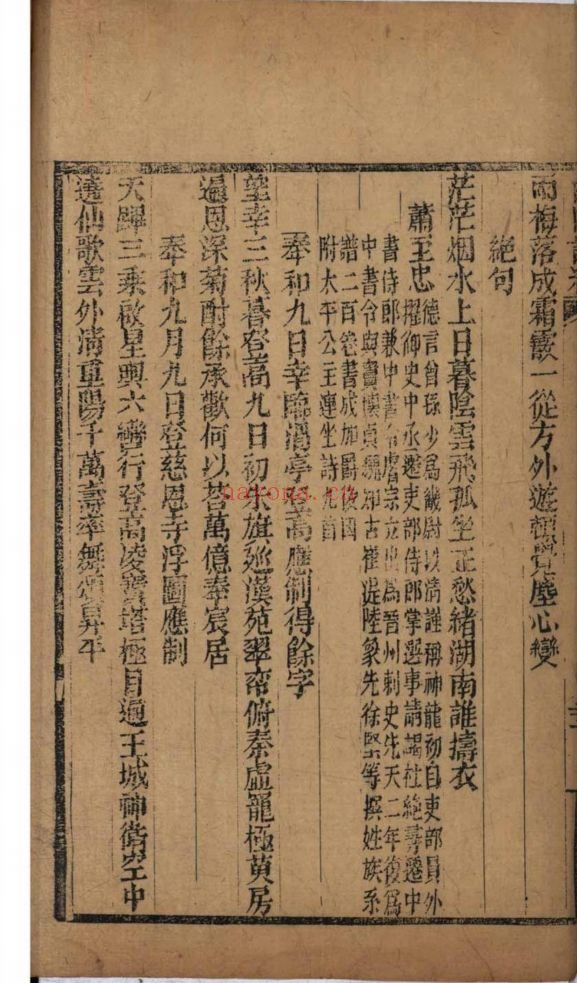 雨梅落成霜霰一從方外遊頓覺塵心變
絕句
茫茫烟水上日暮陰雲飛孤坐正愁緒湖南誰擣衣
蕭至忠
德言曾孫少爲畿尉以清謹稱神龍初自吏部員外
擢御史中丞遷吏部侍郎掌選事請謁杜絕尋遷中
書侍郎兼中書令睿宗立出爲晉州刺史先天二年復爲
中書令與竇懷貞魏知古崔湜陸象先徐堅等撰姓族系
譜二百卷書成加爵後因
附太平公主連坐詩九首
奉和九日幸臨渭亭登高應制得餘字
望幸三秋暮登高九日初朱旗巡漢苑翠帟俯秦虛寵極萸房
遍恩深菊酎餘承歡何以荅萬億奉宸居
奉和九月九日登慈恩寺浮圖應制
天蹕三乘啟星輿六轡行登高凌寶塔極目遍王城神衛空中
遶仙歌雲外清重陽千萬壽率舞頌昇平